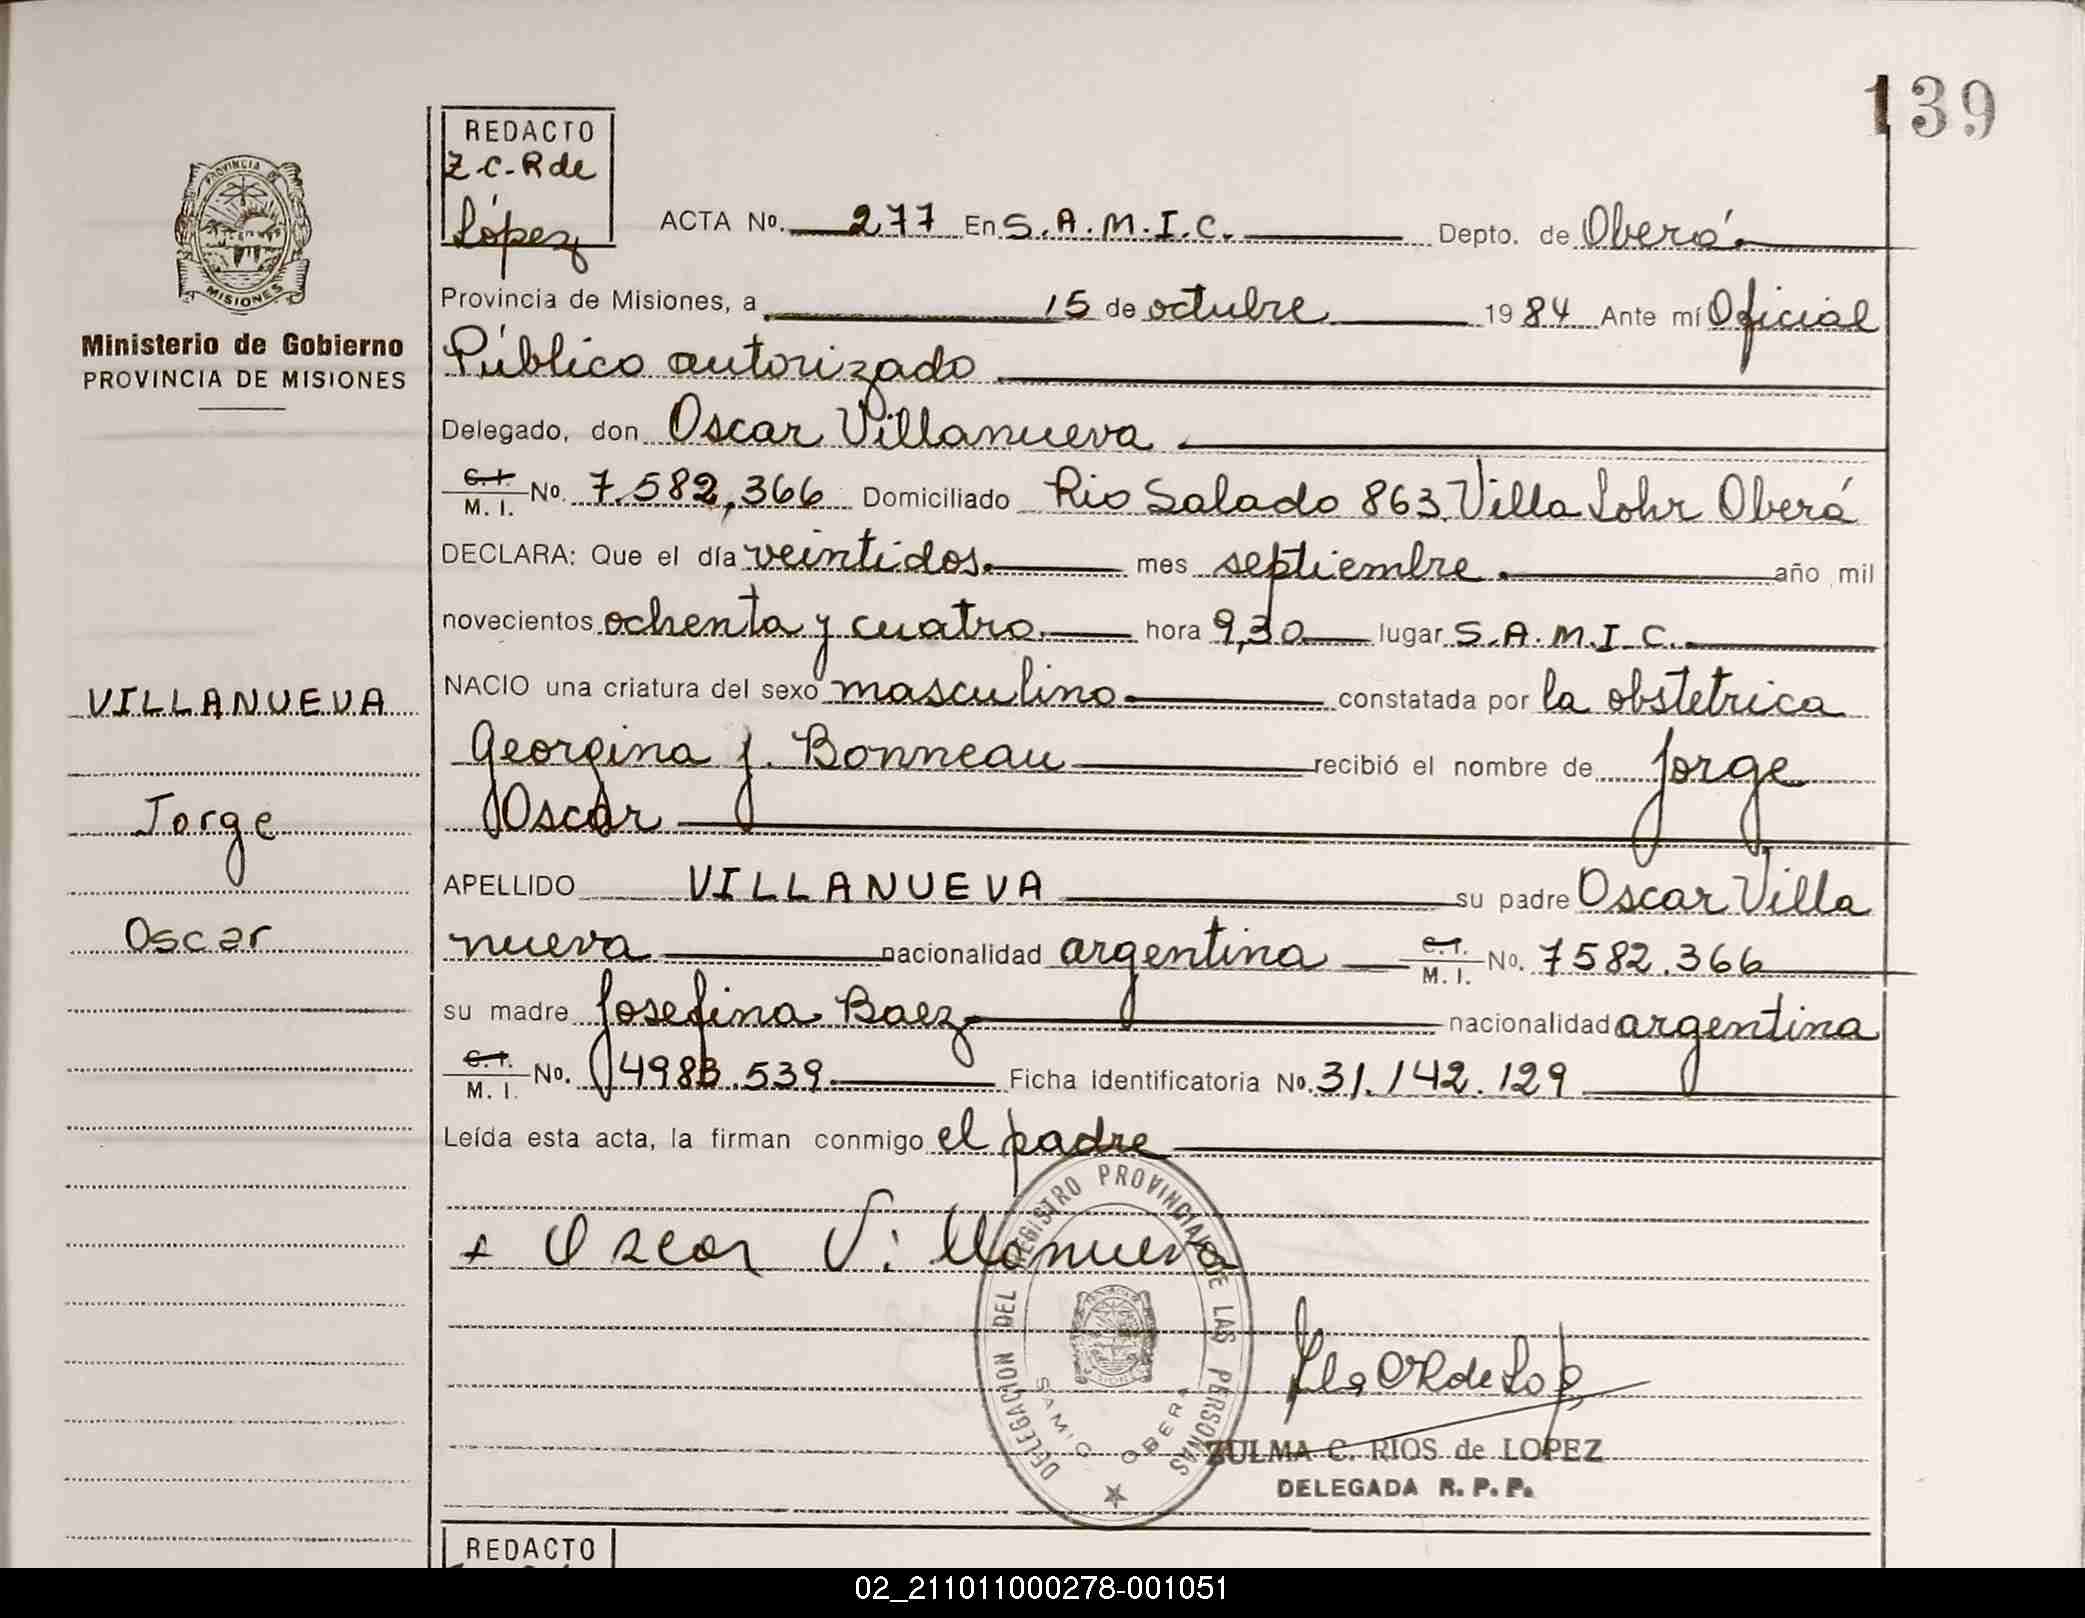 139
REDACTO
Z.C.R de
López
PROVINCIA DE
MISIONES
Ministerio de Gobierno
PROVINCIA DE MISIONES
ACTA No. 277 En S.A.M.I.C. Depto. de Oberá
Provincia de Misiones, a 15 de octubre 1984 Ante mí Oficial
Público autorizado
Delegado, don Oscar Villanueva
C. I. M. I. No. 7.582,366 Domiciliado Rio Salado 863 Villa Lohr Oberá
DECLARA: Que el día veintidos mes septiembre año mil
novecientos ochenta y cuatro hora 9,30 lugar S.A.M.I.C.
NACIO una criatura del sexo masculino constatada por la obstetrica
Georgina J. Bonneau recibió el nombre de Jorge
Oscar
APELLIDO VILLANUEVA su padre Oscar Villa
nueva nacionalidad argentina C. I. M. I. No. 7582.366
su madre Josefina Baez nacionalidad argentina
C. I. M. I. No. 4983.539 Ficha identificatoria No. 31.142.129
Leída esta acta, la firman conmigo el padre
VILLANUEVA
Jorge
Oscar
Oscar Villanueva
DELEGACION DEL REGISTRO PROVINCIAL DE LAS PERSONAS
SAMIC OBERA
ZULMA C. RIOS de LOPEZ
DELEGADA R. P. P.
REDACTO
02_211011000278-001051